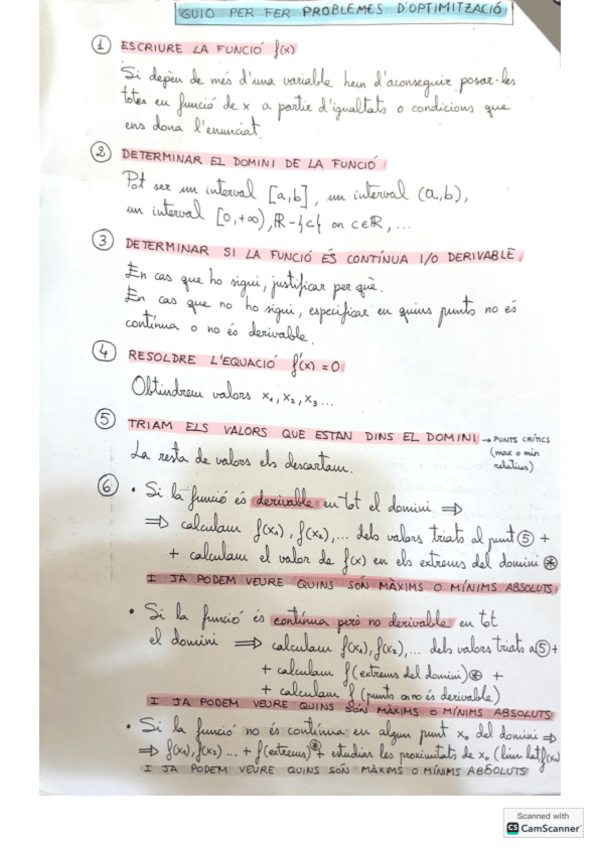 GUIÓ PER FER PROBLEMES D'OPTIMITZACIÓ
① ESCRIURE LA FUNCIÓ f(x)
Si depèn de més d'una variable hem d'aconseguir posar-les
totes en funció de x a partir d'igualtats o condicions que
ens dona l'enunciat.
② DETERMINAR EL DOMINI DE LA FUNCIÓ
Pot ser un interval [a,b], un interval (a,b),
un interval [0,+∞), ℝ-{c} on c∈ℝ, ...
③ DETERMINAR SI LA FUNCIÓ ÉS CONTÍNUA I/O DERIVABLE.
En cas que ho sigui, justificar per què.
En cas que no ho sigui, especificar en quins punts no és
contínua o no és derivable.
④ RESOLDRE L'EQUACIÓ f'(x) = 0
Obtindrem valors x₁, x₂, x₃ ...
⑤ TRIAM ELS VALORS QUE ESTAN DINS EL DOMINI → PUNTS CRÍTICS
(max o min
relatius)
La resta de valors els descartam.
⑥ • Si la funció és derivable en tot el domini ⇒
⇒ calculam f(x₁), f(x₂), ... dels valors triats al punt ⑤ +
+ calculam el valor de f(x) en els extrems del domini ⊛
I JA PODEM VEURE QUINS SÓN MÀXIMS O MÍNIMS ABSOLUTS
• Si la funció és contínua però no derivable en tot
el domini ⇒ calculam f(x₁), f(x₂), ... dels valors triats a ⑤ +
+ calculam f(extrems del domini) ⊛ +
+ calculam f (punts on no és derivable)
I JA PODEM VEURE QUINS SÓN MÀXIMS O MÍNIMS ABSOLUTS
• Si la funció no és contínua en algun punt x₀ del domini ⇒
⇒ f(x₁), f(x₂) ... + f(extrems)⊛ + estudiar les proximitats de x₀ (lím lat f(x₀)
I JA PODEM VEURE QUINS SÓN MÀXIMS O MÍNIMS ABSOLUTS
Scanned with
CS CamScanner